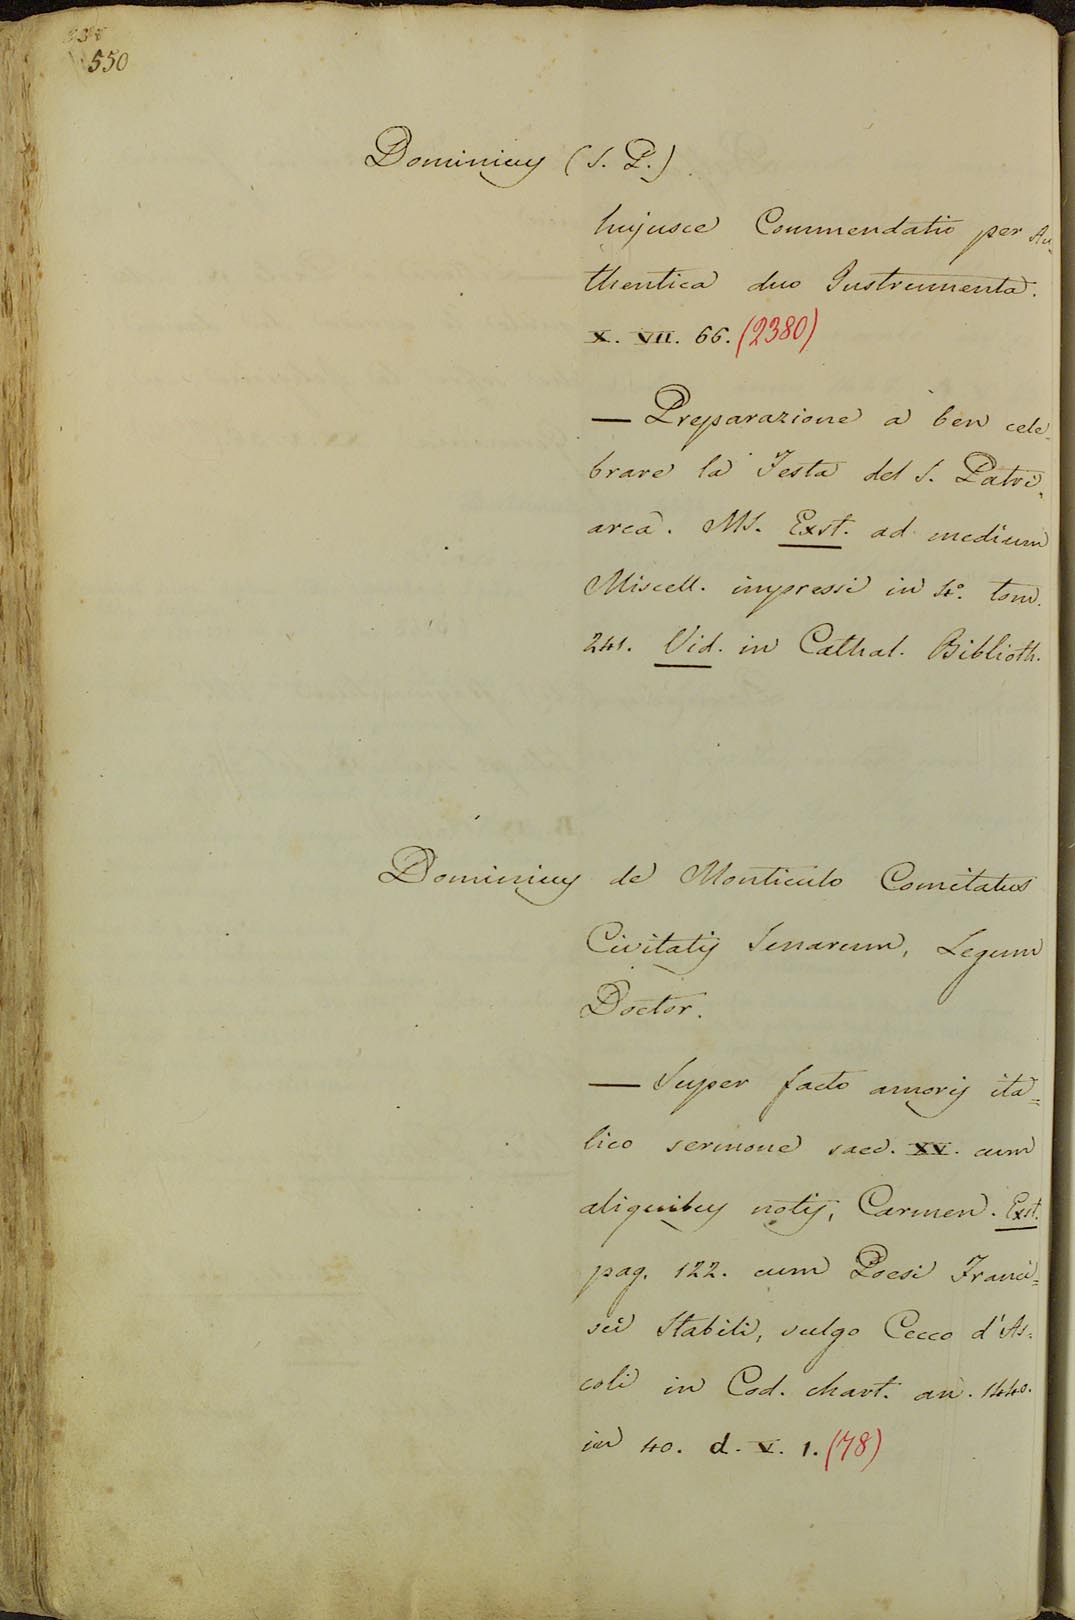 550
Dominicus (S. P.)
hujusce Commendatio per Au-
thentica duo Instrumenta.
X. VII. 66. (2380)
— Preparazione a ben cele-
brare la Festa del S. Patri-
arca. MS. Exst. ad medium
Miscell. impressi in 4°. tom.
241. Vid. in Cathal. Biblioth.
Dominicus de Monticulo Comitatus
Civitatis Senarum, Legum
Doctor.
— Super facto amoris ita=
lico sermone saec. XV. cum
aliquibus notis, Carmen. Exst.
pag. 122. cum Poesi Franci=
sci Stabili, vulgo Cecco d'As-
coli in Cod. chart. an. 1440.
in 40. d. V. 1. (78)